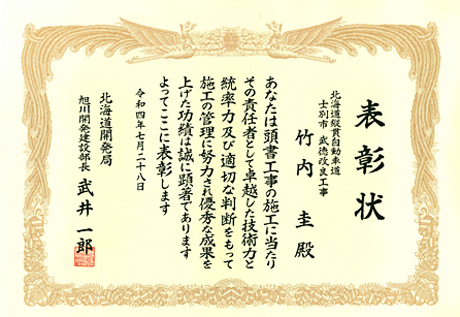 表彰状
北海道縦貫自動車道
士別市 武徳改良工事
竹内 圭 殿
あなたは頭書工事の施工に当たり
その責任者として卓越した技術力と
統率力及び適切な判断をもって
施工の管理に努力され優秀な成果を
上げた功績は誠に顕著であります
よってここに表彰します
令和四年七月二十八日
北海道開発局
旭川開発建設部長 武井 一郎